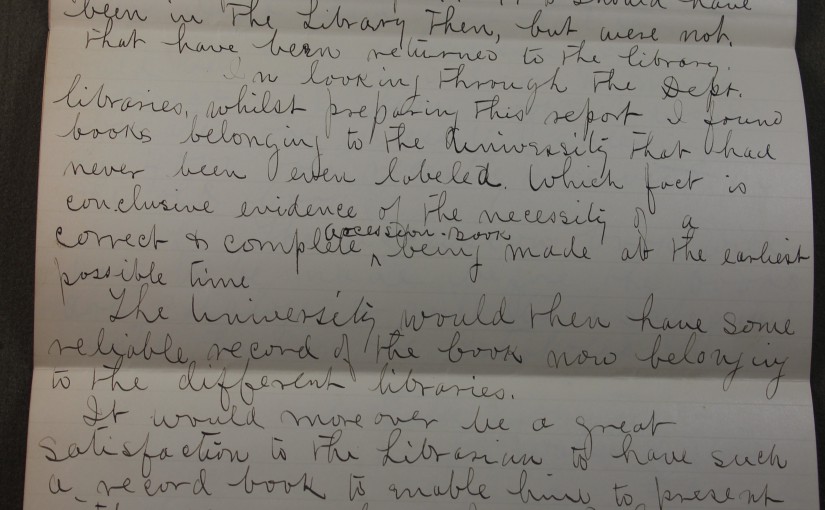 should have
been in The Library Then, but were not.
that have been returned to the library.
In looking through The Dept.
libraries, whilst preparing This report I found
books belonging to the University That had
never been even labeled. Which fact is
conclusive evidence of the necessity of a
accession-book
correct & complete ^ being made at the earliest
possible time
The University would then have some
reliable record of the book now belonging
to the different libraries.
It would moreover be a great
satisfaction to the Librarian to have such
a record book to enable him to present